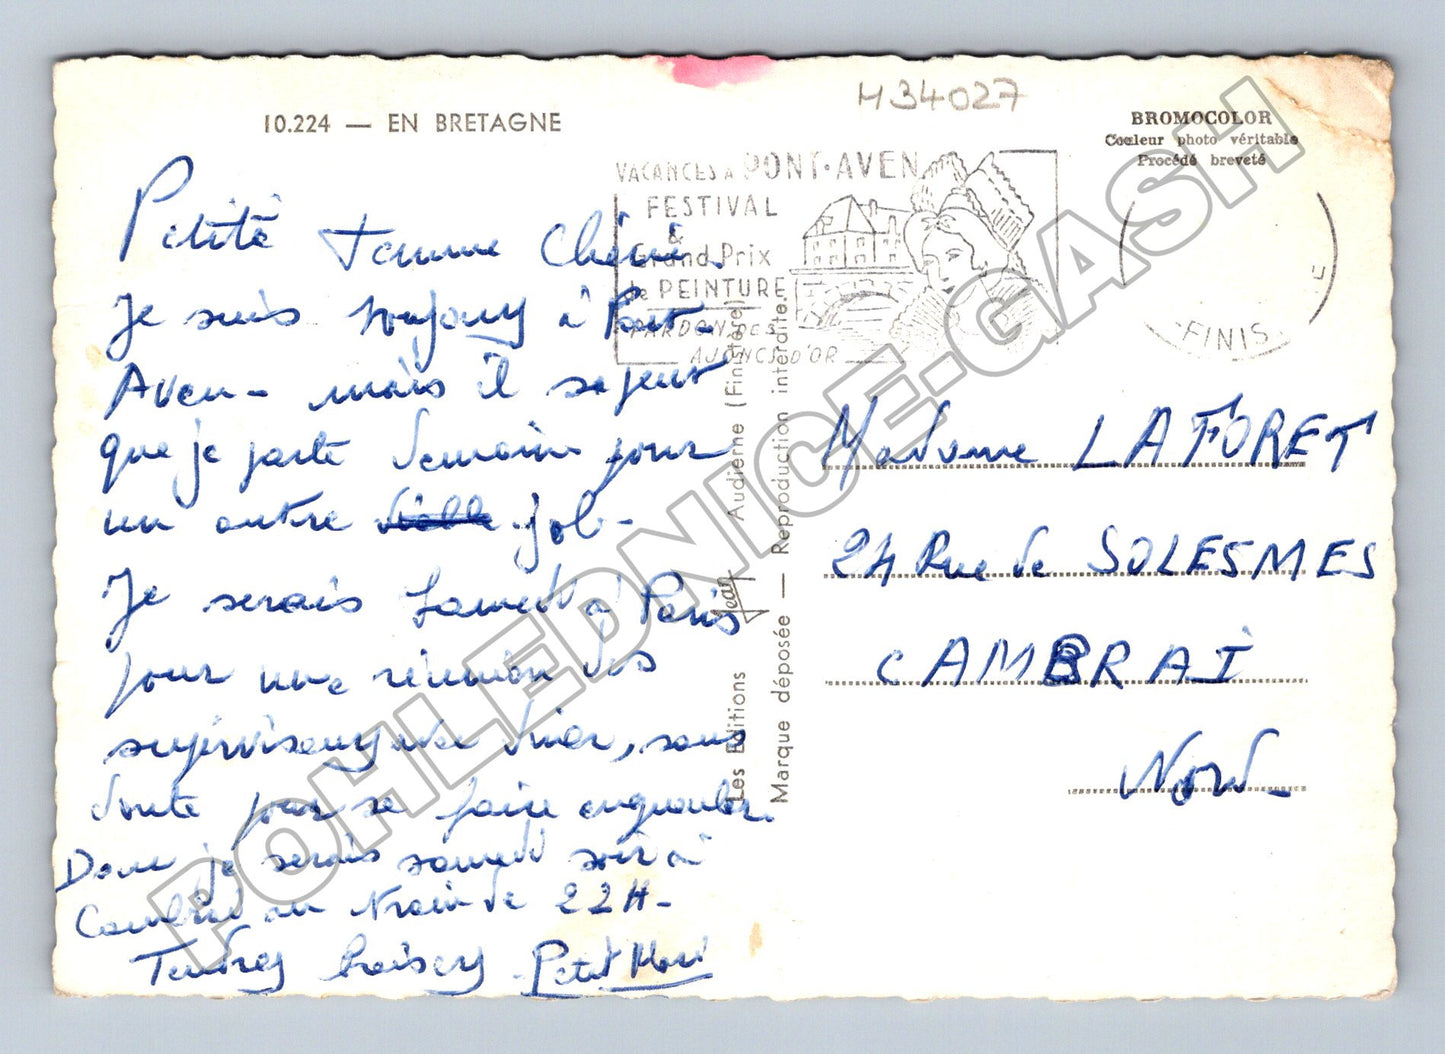 10.224 — EN BRETAGNE
H34027
BROMOCOLOR
Couleur photo véritable
Procédé breveté
VACANCES A PONT-AVEN
FESTIVAL
&
Grand Prix
de PEINTURE
PARDON DES
AJONCS D'OR
FINIS E
Petite femme Chérie.
Je suis toujours à Pont-
Aven - mais il se peut
que je parte demain pour
un autre job-
Je serais samedi à Paris
pour une réunion des
superviseurs avec dîner, sans
doute pour se faire engueuler.
Donc je serais samedi soir à
Cambrai au train de 22H-
Tendres baisers - Petit Mari
Les Éditions Jean Audierne (Finistère)
Marque déposée — Reproduction interdite.
Madame LAFORET
24 Rue de SOLESMES
CAMBRAI
Nord
POHLEDNICE-GASH